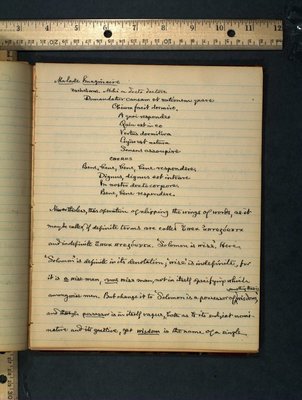 Malade Imaginaire
Bachelierus. Mihi a docto doctore
Demandatur causam et rationem quare
Opium facit dormire,
A quoi respondeo
Quia est in eo
Virtus dormitiva
Cujus est natura
Sensus assoupire
CHORUS
Bene, bene, bene, bene respondere;
Dignus, dignus est intrare
In nostro docto corpore.
Bene, bene respondere.
Nevertheless, this operation of the wings of words, as it
may be called, if definite terms are called
and indefinite. Solomon is wise. Here
'Solomon' is definite in its denotation; 'wise' is indefinite, for
it is a wise man, any wise man, not in itself specifying which
among wise men. But change it to Solomon is a possessor of wisdom,
and though possessor is in itself vague, both as to its subject nomi-
native and its genitive, yet wisdom is the name of a single